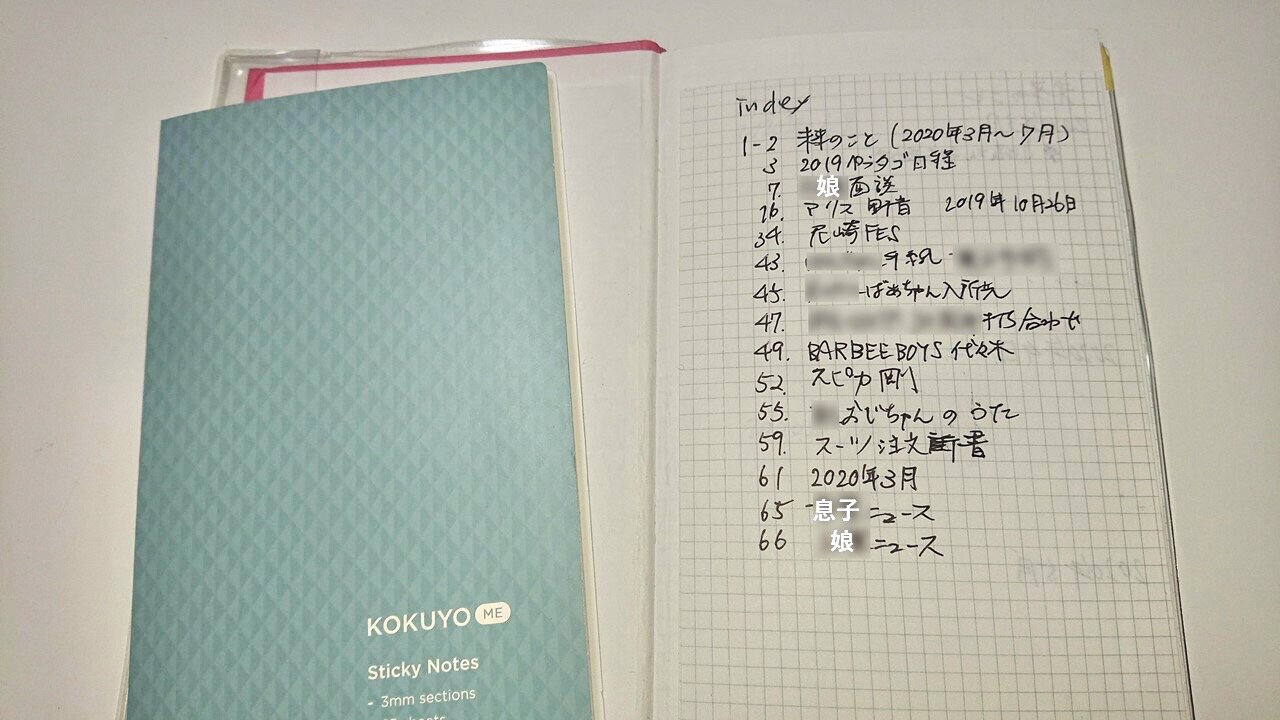 KOKUYO ME
Sticky Notes
- 3mm sections
index
1-2 未来のこと (2020年3月〜7月)
3 2019 日程
7. 娘 面談
26. アリス 2019年10月26日
34. 尼崎FES
43. 手紙
45. ばあちゃん入所先
47. 打ち合わせ
49. BARBEE BOYS 代々木
52. スピカ 剛
55. おじちゃんのうた
59. スーツ注文 書
61 2020年3月
65 息子 ニュース
66 娘 ニュース